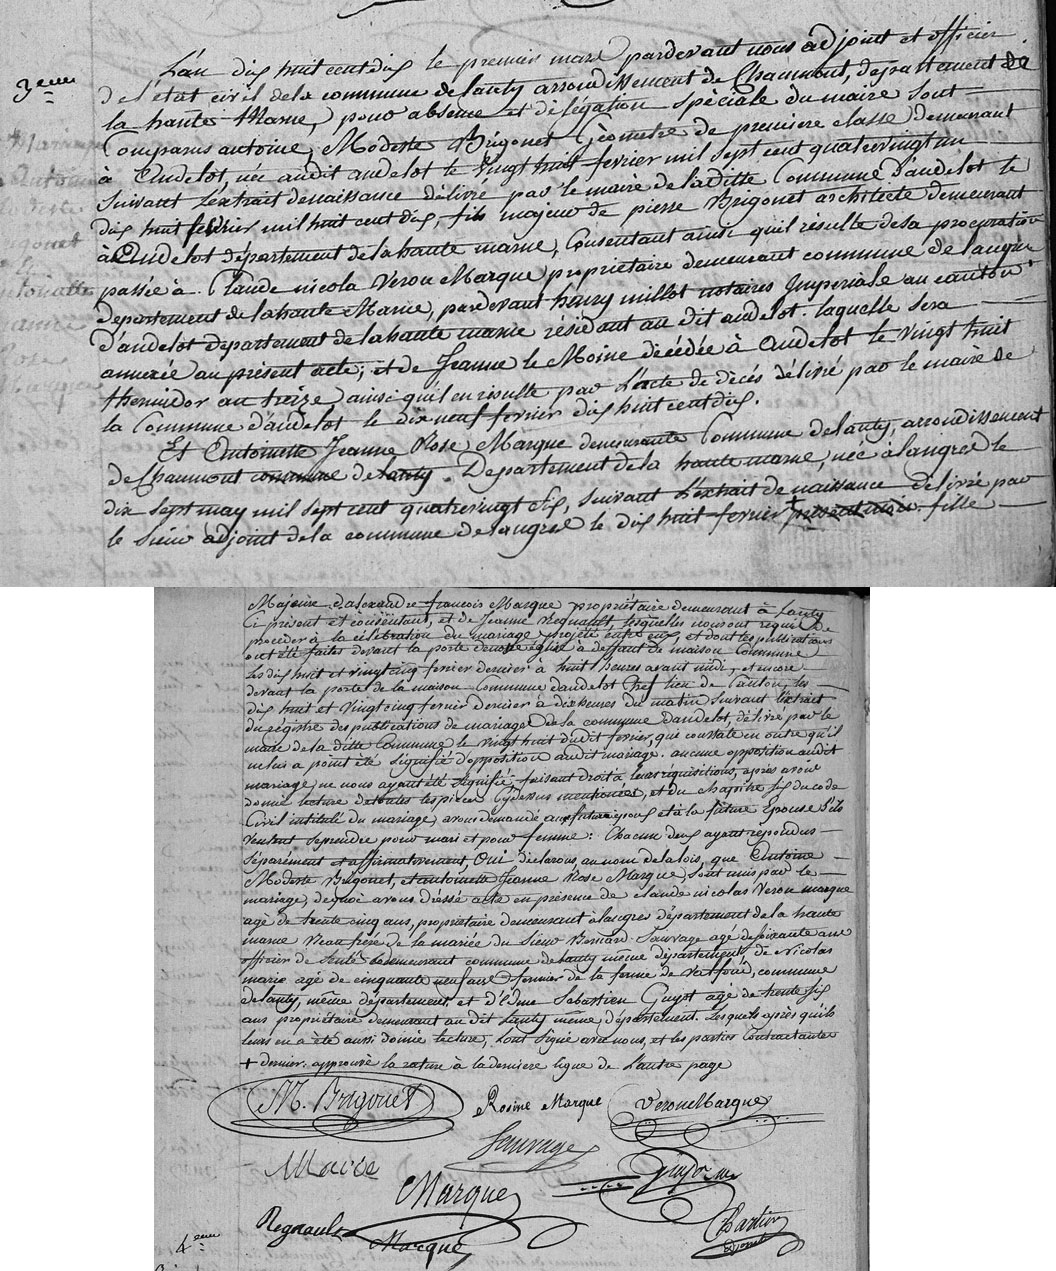 3eme
L'an dix huit cent dix le premier mars pardevant nous adjoint et officier
de l'état civil de la commune de lanty arrondissement de Chaumont, département de
la haute Marne, pour absence et délégation spéciale du maire sont
Comparus antoine, Modeste Brigonet Géometre de premiere classe demeurant
à Andelot, née audit andelot le vingt huit fevrier mil sept cent quatrevingt un
suivant L'extrait de naissance délivré par le maire de la ditte Commune d'andelot le
dix huit fevrier mil huit cent dix, fils majeur de pierre Brigonet architecte demeurant
à Andelot département de la haute marne, Consentant ainsi quil résulte de sa procuration
passée à Claude nicola Veron Marque propriétaire demeurant commune de langres
département de la haute Marne, pardevant henry millot notaires Imperiale au canton
D'andelot département de la haute marne résidant au dit andelot. laquelle sera
annexée au présent acte; et de Jeanne le Moine décédée à Andelot le vingt huit
thermidor an treize ainsi qu'il en résulte par L'acte de décés délivré par le maire de
la Commune d'andelot le dix neuf fevrier dix huit cent dix.
Et Antoinette Jeanne Rose Marque demeurante Commune de lanty, arrondissement
de Chaumont commune de lanty. Département de la haute marne, née à langres le
dix sept may mil sept cent quatrevingt six, suivant L'extrait de naissance délivré par
le sieur adjoint de la commune de langres le dix huit fevrier + fille
Majeure d'alexandre francois Marque propriétaire demeurant à Lanty
Ci présent et consentant, et de Jeanne Regnault, lesquelles nous ont requis de
procéder à la célébration du mariage projété entre eux, et dont les publications
ont été faites devant la porte de notre église à deffaut de maison Commune
Les dix huit et vingt cinq fevrier dernier à huit heures avant midi, et encore
devant la porte de la maison Commune d'andelot Chef lieu de Canton, les
dix huit et vingt cinq fevrier dernier à dix heures du matin suivant L'extrait
du régistre des publications de mariage de la commune d'andelot, délivré par le
maire de la ditte Commune le vingt huit dudit fevrier, qui constate en outre qu'il
ne lui a point été signifié d'opposition audit mariage. aucune opposition audit
mariage, ne nous ayant été signifié, faisant droit à leurs réquisitions, après avoir
donné lecture de toutes les pièces Cy dessus mentionnés, et du chapitre six du code
Civil intitulé du mariage, avons demandé au future epoux et à la future Epouse S'ils
veulent se prendre pour mari et pour femme: Chacune deux ayant repondus
séparément et affirmativement, Oui déclarons, au nom de la lois, que Antoine
Modeste Brigonet, et antoinette Jeanne Rose Marque, sont unis par le
mariage, de quoi avons dressé acte en présence de claude nicolas Veron marque
agé de trente cinq ans, propriétaire demeurant à langres département de la haute
marne Beau frere de la mariée du Sieur Bernard Sauvage agé de soixante ans
officier de Santé demeurant commune de lanty même département, de Nicolas
marie agé de cinquante neuf ans fermier de la ferme de commune
de lanty, même département, et d'Edme Sebastien Guyot agé de trente six
ans propriétaire demeurant au dit Lanty même département. Lesquels après qu'ils
leurs en a été aussi donné lecture, sont signé avec nous, et les parties Contractantes
+ dernier. approuvé la rature à la dernière ligne de L'autre page
M. Brigonet Rosine Marque Veron Marque
Sauvage
Marie Guyot
Marque
Regnault Marque
4eme